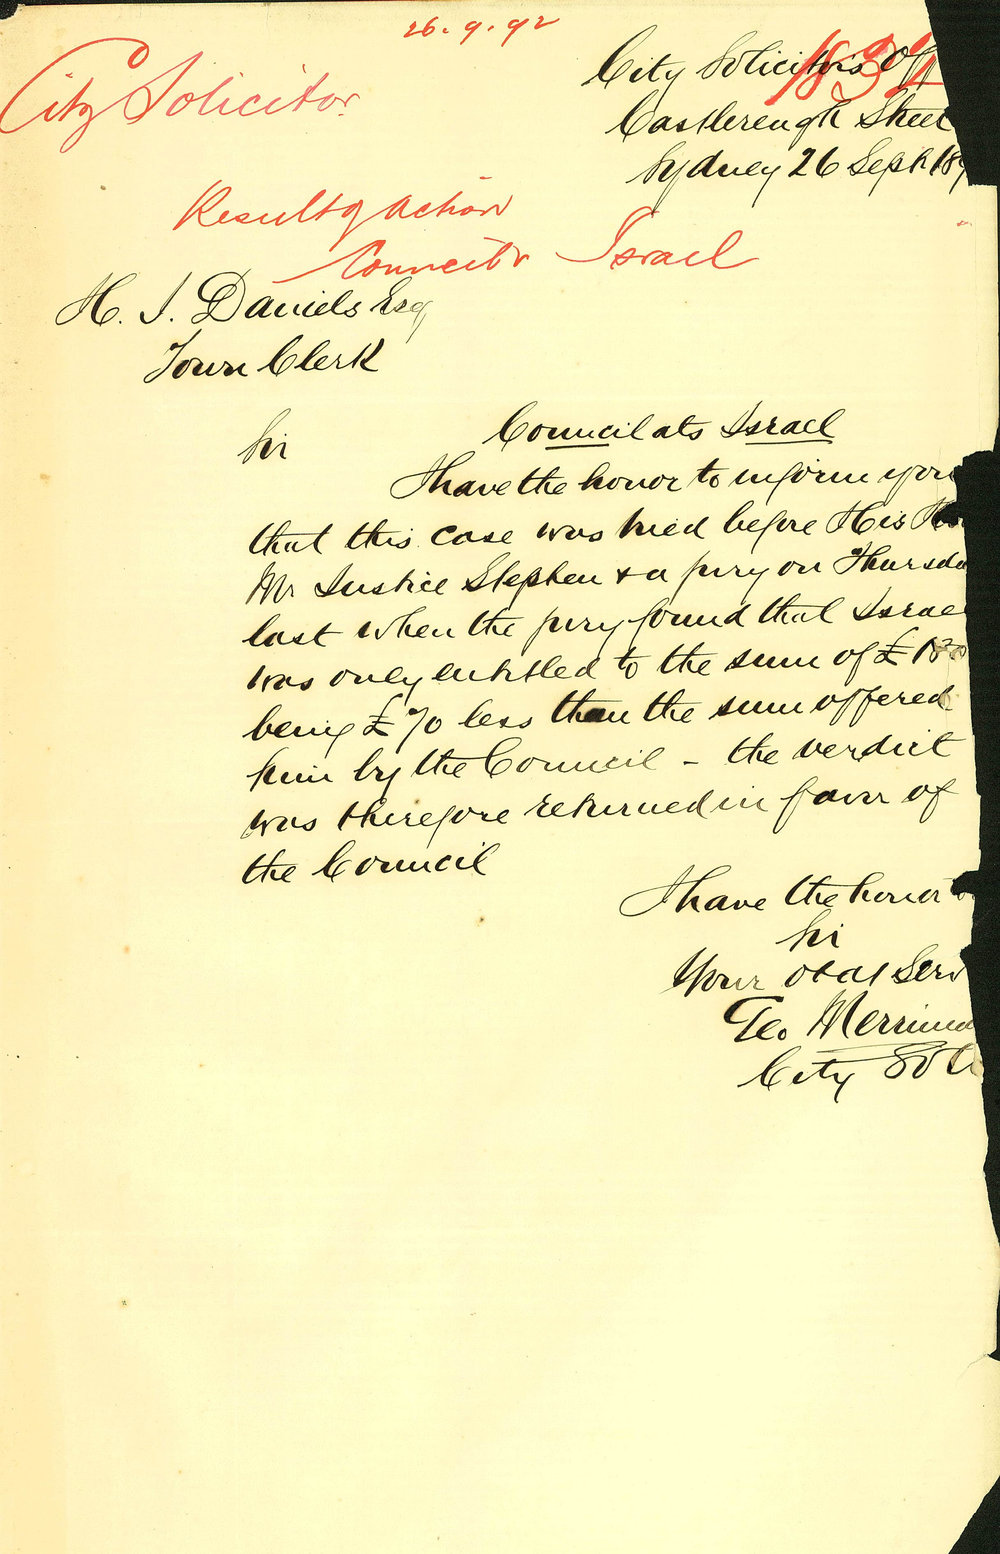 26.9.92
City Solicitor
City Solicitor's Off
Castlereagh Street
Sydney 26 Sept. 189
Result of action
Council v Israel
H. J. Daniels Esq
Town Clerk
Sir
Council ats Israel
I have the honor to inform you
that this case was tried before His
Mr Justice Stephen & a jury on Thursda
last when the jury found that Israe
was only entitled to the sum of
being £70 less than the sum offered
him by the Council - the verdict
was therefore returned in favor of
the Council
I have the honor to
Sir
Your obdt Serv
Geo. Merriman
City Sol